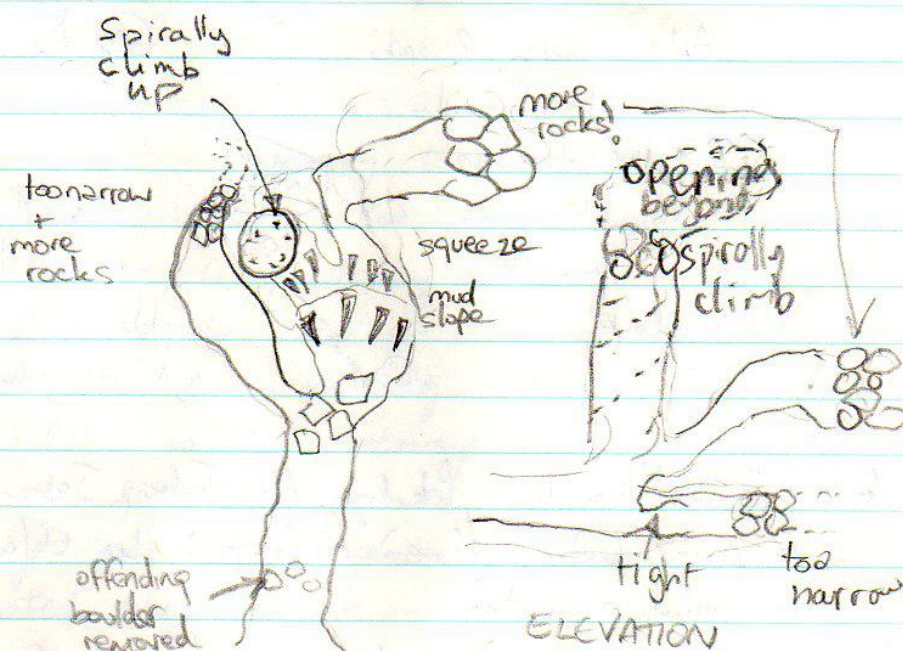 Spirally
climb
up
more
rocks!
too narrow
+
more
rocks
squeeze
mud
slope
opening
beyond
spirally
climb
offending
boulder
removed
tight
too
narrow
ELEVATION